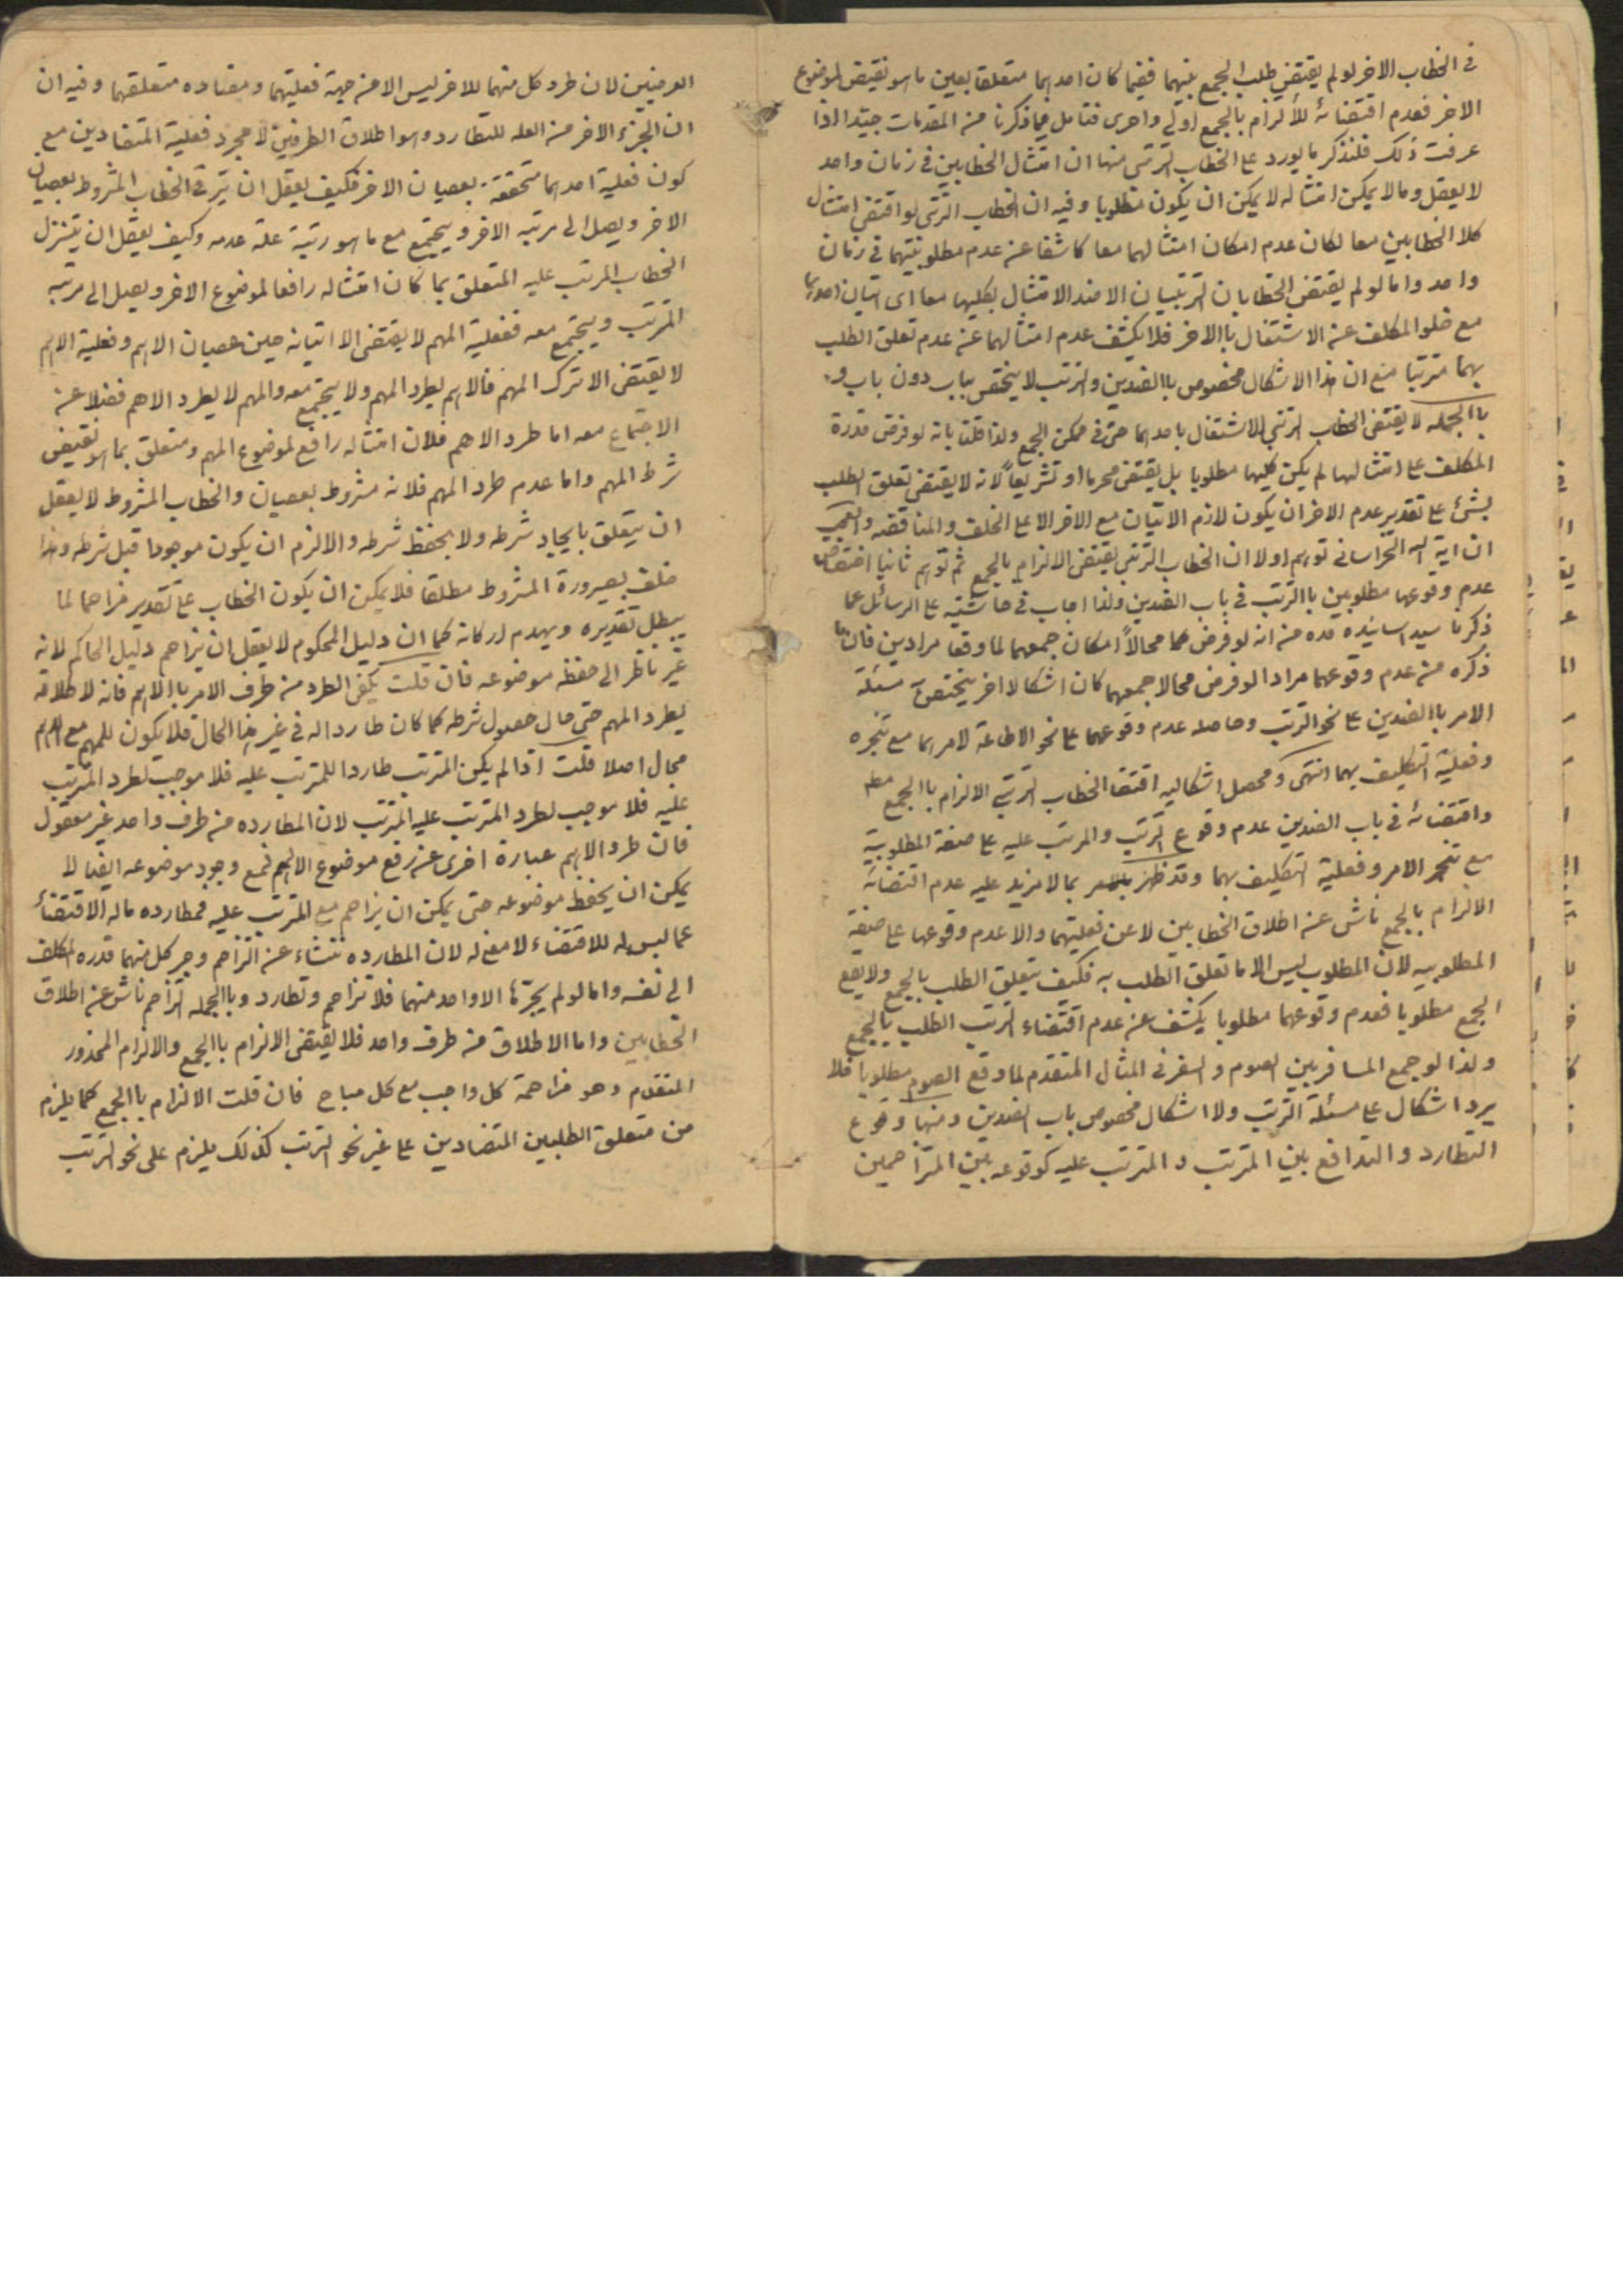 في الخطاب الاخر لو لم يقتض طلب الجمع بينهما ففيما كان احدهما متعلقا بعين ما هو نقيض لموضوع
الاخر فعدم اقتضائه للألزام بالجمع اولى واحرى فتامل فيما ذكرنا من المقدمات جيّدا اذا
عرفت ذلك فلنذكر ما يورد على الخطاب الترتبى منها ان امتثال الخطابين في زمان واحد
لا يعقل وما لا يمكن امتثاله لا يمكن ان يكون مطلوبا وفيه ان الخطاب الترتبى لو اقتضى امتثال
كلا الخطابين معا لكان عدم امكان امتثالهما معا كاشفا عن عدم مطلوبيتهما في زمان
واحد واما لو لم يقتض الخطابان الترتبيان الا ضد الامتثال بكليهما معا اى اتيان احدهما
مع خلو المكلف عن الاشتغال باالاخر فلا يكشف عدم امتثالهما عن عدم تعلق الطلب
بهما مترتبا مع ان هذا الاشكال مخصوص باالضدين والترتب لا يختص بباب دون باب و
باالجمله لا يقتضى الخطاب الترتبي للاشتغال باحدهما حتى في ممكن الجمع ولذا قلنا بانه لو فرض قدرة
المكلف على امتثالهما لم يكن كليهما مطلوبا بل يقتضى محرما او تشريعاً لانه لا يقتضى تعلق الطلب
بشئ على تقدير عدم الاخر ان يكون لازم الاتيان مع الاخر الا على الخلف والمناقضه والعجب
ان اية الله الخراسانى توهم اولا ان الخطاب الترتبى يقتضى الالزام بالجمع ثم توهم ثانيا اقتضائه
عدم وقوعها مطلوبين باالترتب في باب الضدين ولذا اجاب في حاشيته على الرسائل عما
ذكره سيد اساتيذه قده من انه لو فرض محالاً امكان جمعهما لما وقعا مرادين فان ما
ذكره من عدم وقوعهما مرادا لو فرض محالا جمعهما كان اشكالا اخر يختص به مسئلة
الامر باالضدين على نحو الترتب وحاصله عدم وقوعهما على نحو الاطاعة لامرهما مع تنجزه
وفعلية التكليف بهما انتهى ومحصل اشكاليه اقتضا الخطاب الترتبى الالزام باالجمع مط
واقتضائه في باب الضدين عدم وقوع الترتب والمرتب عليه على صفة المطلوبية
مع تنجز الامر وفعلية التكليف بهما وقد ظهر بما لا مزيد عليه عدم اقتضائه
الالزام بالجمع ناش عن اطلاق الخطابين لا عن فعليتهما والا عدم وقوعها على صفة
المطلوبيه لان المطلوب ليس الا ما تعلق الطلب به فكيف يتعلق الطلب بالجمع ولا يقع
الجمع مطلوبا فعدم وقوعهما مطلوبا يكشف عن عدم اقتضاء الترتب الطلب بالجمع
ولذا لو جمع المسافر بين الصوم والسفر في المثال المتقدم لما وقع الصوم مطلوبا فلا
يرد اشكال على مسئلة الترتب ولا اشكال مخصوص باب الضدين ومنها وقوع
التطارد والتدافع بين المترتب والمترتب عليه كوقوعه بين المتزاحمين
العرضيين لان طرد كل منهما للاخر ليس الا من جهة فعليتهما ومضاده متعلقهما وفيه ان
ان الجزء الاخر من العله للتطارد وهو اطلاق الطرفين لا مجرد فعلية المتضادين مع
كون فعلية احدهما متحققة بعصيان الاخر فكيف يعقل ان يترقى الخطاب المشروط بعصيان
الاخر ويصل الى مرتبه الاخر ويجتمع مع ما هو رتبة علة عدمه وكيف يعقل ان يتنزل
الخطاب المرتب عليه المتعلق بما كان امتثاله رافعا لموضوع الاخر ويصل الى مرتبه
المترتب ويجتمع معه ففعلية المهم لا يقتضى الا اتيانه حين عصيان الاهم وفعلية الاهم
لا يقتضى الا ترك المهم فالاهم يطرد المهم ولا يجتمع معه والمهم لا يطرد الاهم فضلا عن
الاجتماع معه اما طرد الاهم فلان امتثاله رافع لموضوع المهم ومتعلق بما هو نقيض
شرط المهم واما عدم طرد المهم فلانه مشروط بعصيان والخطاب المشروط لا يعقل
ان يتعلق بايجاد شرطه ولا بحفظ شرطه والا لزم ان يكون موجودا قبل شرطه وهذا
خلف بصيرورة المشروط مطلقا فلا يمكن ان يكون الخطاب على تقدير مزاحما لما
يبطل تقديره ويهدم اركانه كما ان دليل المحكوم لا يعقل ان يزاحم دليل الحاكم لانه
غير ناظر الى حفظ موضوعه فان قلت يكفى الطرد من طرف الامر باالاهم فانه لاطلاقه
يطرد المهم حتى حال حصول شرطه كما كان طاردا له في غير هذا الحال فلا يكون للمهم مع الاهم
مجال اصلا قلت اذا لم يكن المترتب طاردا للمترتب عليه فلا موجب لطرد المترتب
عليه فلا موجب لطرد المترتب عليه المترتب لان المطارده من طرف واحد غير معقول
فان طرد الاهم عبارة اخرى عن رفع موضوع الاهم فمع وجود موضوعه ايضا لا
يمكن ان يحفظ موضوعه حتى يمكن ان يزاحم مع المترتب عليه فمطارده ماله الاقتضأ
عما ليس له للاقتضاء لا معنى له لان المطارده تنشاء عن التزاحم وجر كل منهما قدره المكلف
الى نفسه واما لو لم يجرّها الا واحد منهما فلا تزاحم وتطارد وباالجمله التزاحم ناش عن اطلاق
الخطابين واما الاطلاق من طرف واحد فلا يقتضى الالزام باالجمع والالزام المحذور
المتقدم وهو مزاحمة كل واجب مع كل مباح فان قلت الالزام باالجمع كما يلزم
من متعلق الطلبين المتضادين على غير نحو الترتب كذلك يلزم على نحو الترتب